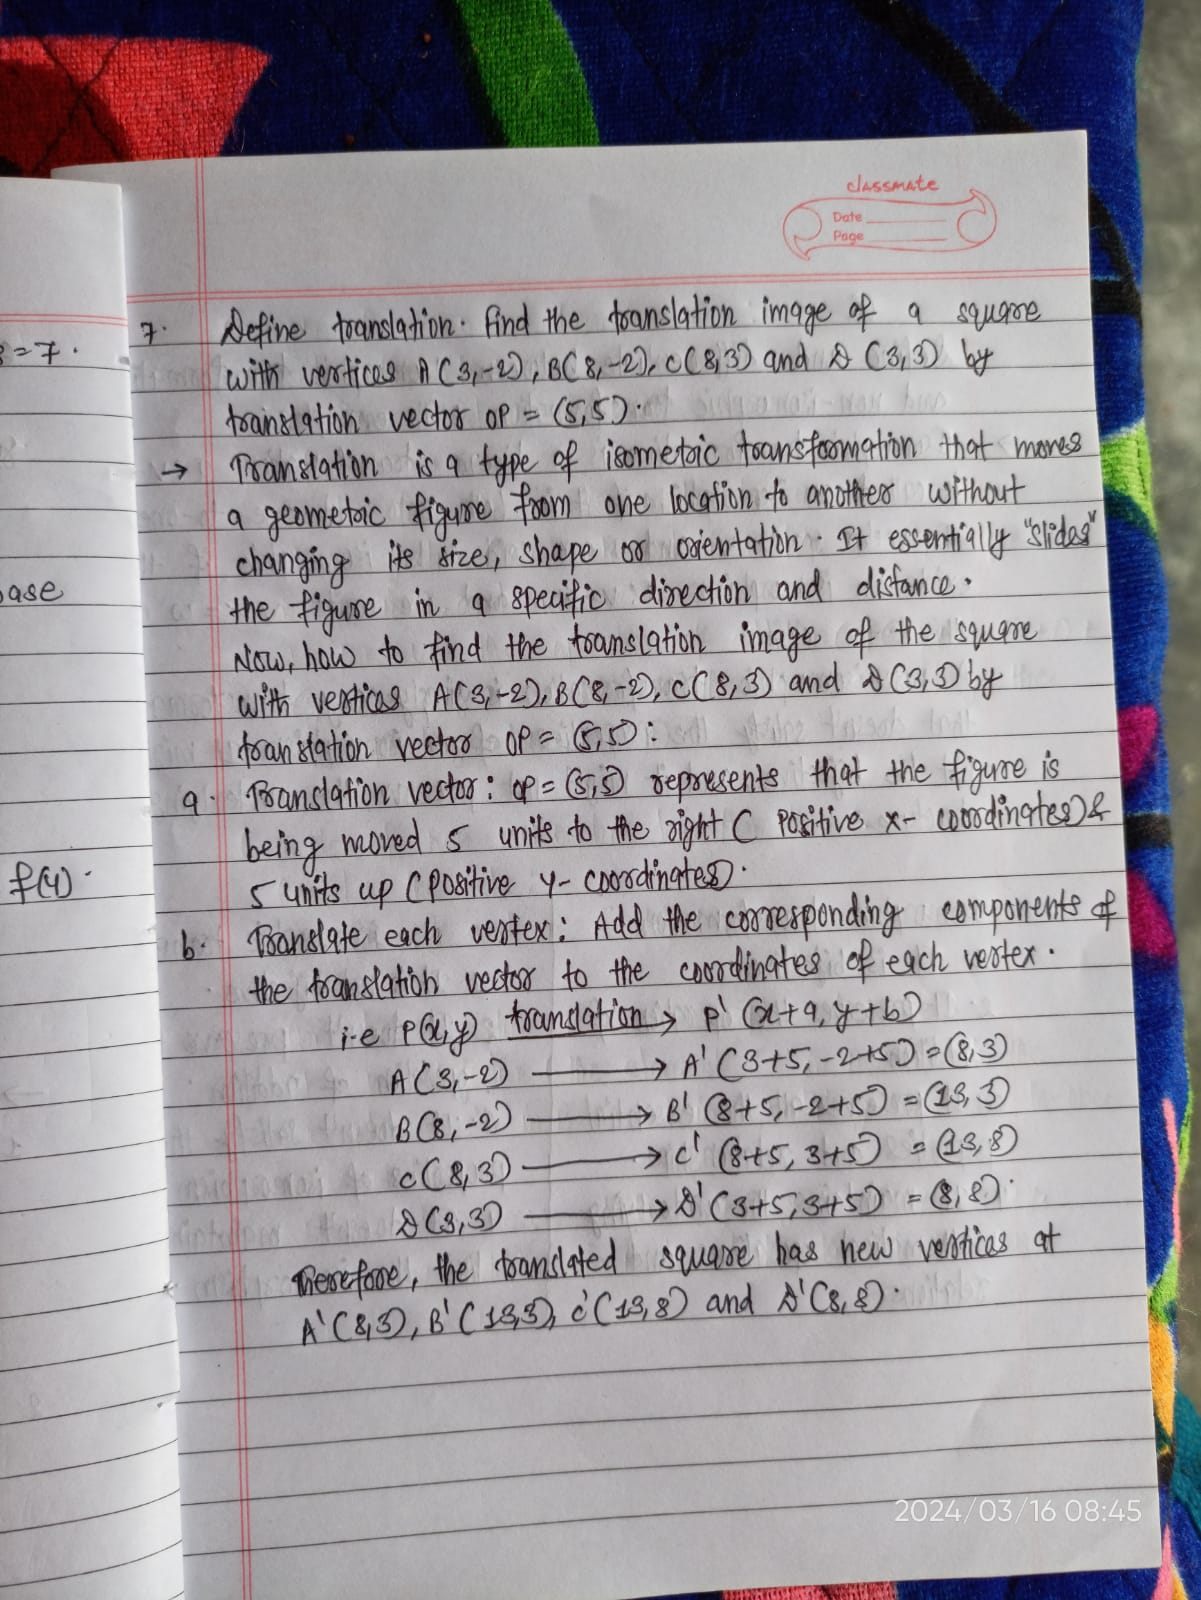 classmate
Date
Page
3=7.
ase
f(4).
7. Define translation. Find the translation image of a square
with vertices A(3,-2), B(8,-2), C(8,3) and D (3,3) by
translation vector OP = (5,5).
→ Translation is a type of isometric transformation that moves
a geometric figure from one location to another without
changing its size, shape or orientation. It essentially "slides"
the figure in a specific direction and distance.
Now, how to find the translation image of the square
with vertices A(3,-2), B(8,-2), C(8,3) and D(3,3) by
translation vector OP = (5,5):
a. Translation vector: OP=(5,5) represents that the figure is
being moved 5 units to the right ( Positive x- coordinates) &
5 units up (positive y- coordinates).
b. Translate each vertex: Add the corresponding components of
the translation vector to the coordinates of each vertex.
i.e P(x,y) translation→ P' (x+a, y+b)
A(3,-2) → A' (3+5, -2+5) = (8,3)
B(8,-2) → B' (8+5, -2+5) = (13,3)
C(8,3) → C' (8+5, 3+5) = (13,8)
D(3,3) → D' (3+5, 3+5) = (8,8).
Therefore, the translated square has new vertices at
A'(8,3), B'(13,3), C'(13,8) and D'(8,8).
2024/03/16 08:45